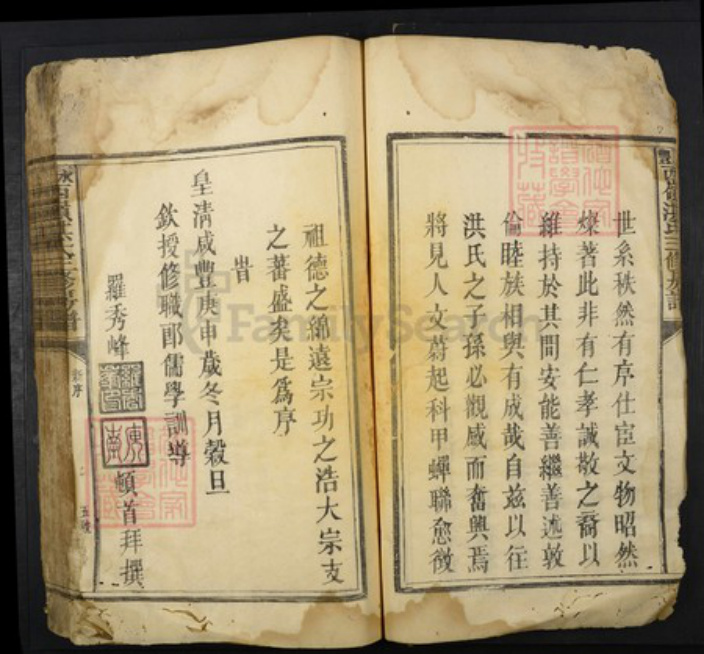 世系秩然有序仕宦文物昭然
燦著此非有仁孝誠敬之裔以
維持於其間安能善繼善述敦
倫睦族相與有成哉自茲以往
洪氏之子孫必觀感而奮興焉
將見人文蔚起科甲蟬聯愈徵
祖德之綿遠宗功之浩大宗支
之蕃盛矣是爲序
旹
皇清咸豐庚申歲冬月穀旦
欽授修職郎儒學訓導
羅秀峰
頓首拜撰
新序
FamilySearch